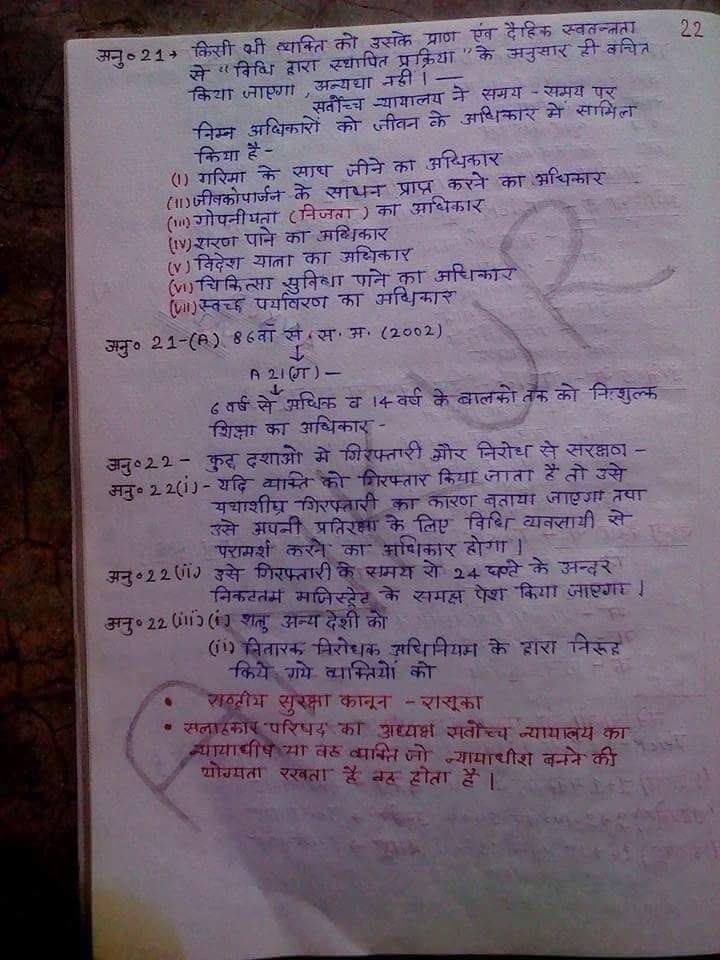 22
अनु० 21→ किसी भी व्यक्ति को उसके प्राण एंव दैहिक स्वतन्त्रता
से "विधि द्वारा स्थापित प्रक्रिया" के अनुसार ही वंचित
किया जाएगा, अन्यथा नहीं। —
सर्वोच्च न्यायालय ने समय - समय पर
निम्न अधिकारों को जीवन के अधिकार में सामिल
किया है -
(i) गरिमा के साथ जीने का अधिकार
(ii) जीवकोपार्जन के साधन प्राप्त करने का अधिकार
(iii) गोपनीयता (निजता) का अधिकार
(iv) शरण पाने का अधिकार
(v) विदेश यात्रा का अधिकार
(vi) चिकित्सा सुविधा पाने का अधिकार
(vii) स्वच्छ पर्यावरण का अधिकार
अनु० 21-(A) 86वाँ सं. स. अ. (2002)
↓
A 21(ग) —
↓
6 वर्ष से अधिक व 14 वर्ष के बालको तक को निःशुल्क
शिक्षा का अधिकार -
अनु० 22 - कुछ दशाओ मे गिरफ्तारी और निरोध से सरक्षण -
अनु० 22(i) - यदि व्यक्ति को गिरफ्तार किया जाता है तो उसे
यथाशीघ्र गिरफ्तारी का कारण बताया जाएगा तथा
उसे अपनी प्रतिरक्षा के लिए विधि व्यवसायी से
परामर्श करने का अधिकार होगा।
अनु० 22(ii) उसे गिरफ्तारी के समय से 24 घण्टे के अन्दर
निकटतम मजिस्ट्रेट के समक्ष पेश किया जाएगा।
अनु० 22(iii) (i) शत्रु अन्य देशी को
(ii) निवारक निरोधक अधिनियम के द्वारा निरूद्ध
किये गये व्यक्तियों को
• राष्ट्रीय सुरक्षा कानून - रासूका
• सलाहकार परिषद का अध्यक्ष सर्वोच्च न्यायालय का
न्यायाधीष या वह व्यक्ति जो न्यायाधीश बनने की
योग्यता रखता है वह होता है।